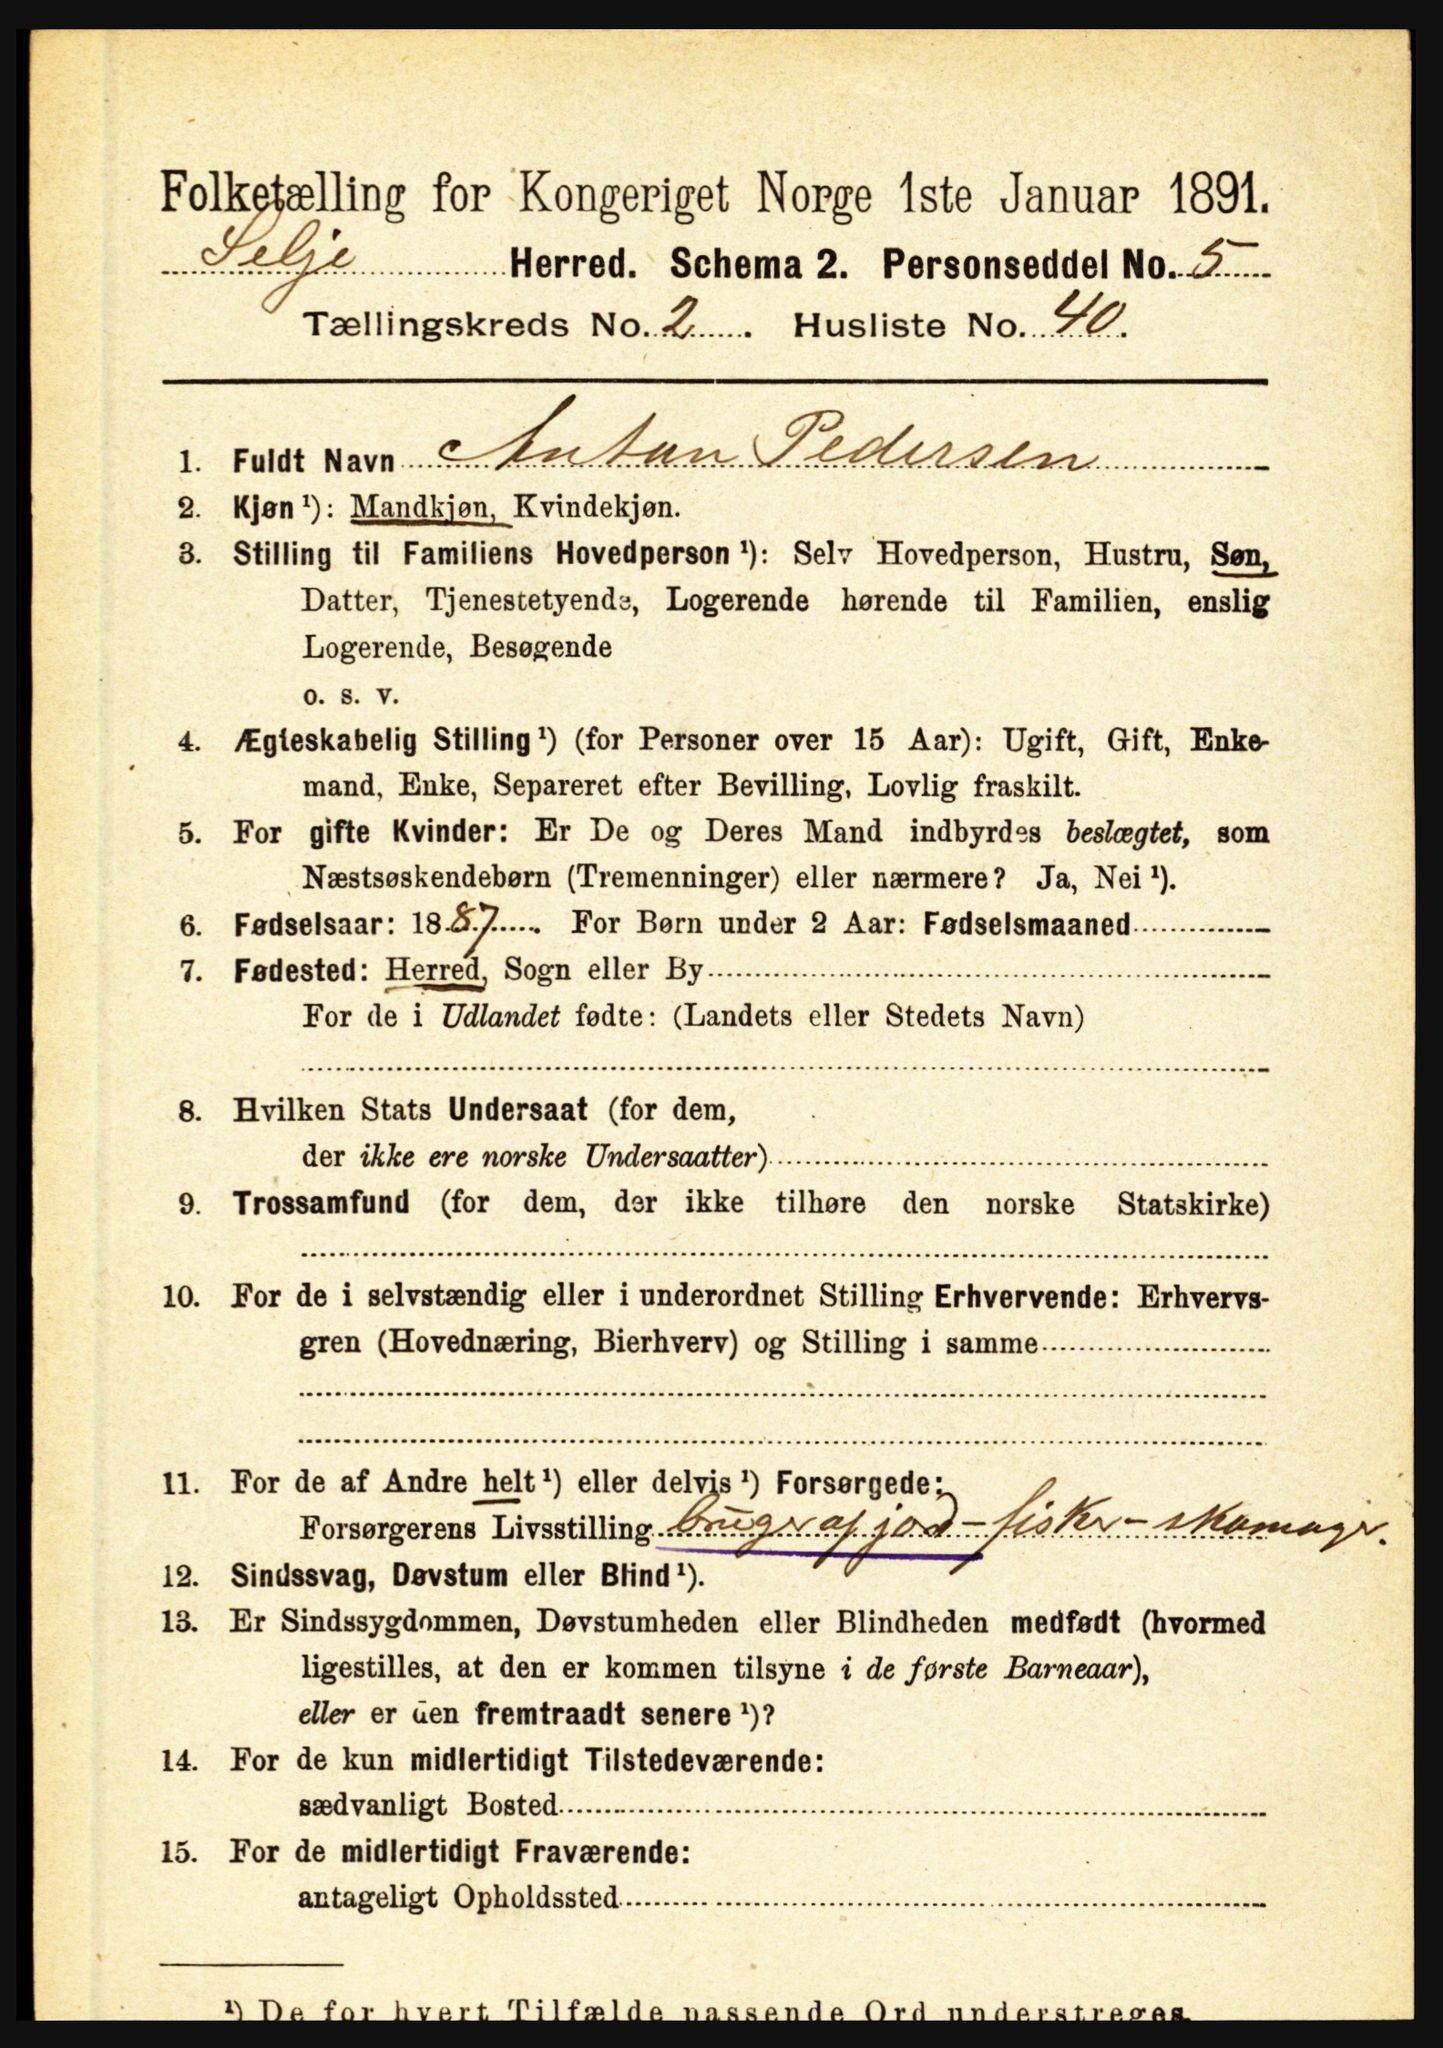 Folketælling for Kongeriget Norge 1ste Januar 1891.
Selje Herred. Schema 2. Personseddel No. 5
Tællingskreds No. 2. Husliste No. 40.
1. Fuldt Navn Anton Pedersen
2. Kjøn ¹): Mandkjøn, Kvindekjøn.
3. Stilling til Familiens Hovedperson ¹): Selv Hovedperson, Hustru, Søn,
Datter, Tjenestetyende, Logerende hørende til Familien, enslig
Logerende, Besøgende
o. s. v.
4. Ægteskabelig Stilling ¹) (for Personer over 15 Aar): Ugift, Gift, Enke-
mand, Enke, Separeret efter Bevilling, Lovlig fraskilt.
5. For gifte Kvinder: Er De og Deres Mand indbyrdes beslægtet, som
Næstsøskendebørn (Tremenninger) eller nærmere? Ja, Nei ¹).
6. Fødselsaar: 1887. For Børn under 2 Aar: Fødselsmaaned
7. Fødested: Herred, Sogn eller By
For de i Udlandet fødte: (Landets eller Stedets Navn)
8. Hvilken Stats Undersaat (for dem,
der ikke ere norske Undersaatter)
9. Trossamfund (for dem, der ikke tilhøre den norske Statskirke)
10. For de i selvstændig eller i underordnet Stilling Erhvervende: Erhvervs-
gren (Hovednæring, Bierhverv) og Stilling i samme
11. For de af Andre helt ¹) eller delvis ¹) Forsørgede:
Forsørgerens Livsstilling bruger af jord - fisker - skomager.
12. Sindssvag, Døvstum eller Blind ¹).
13. Er Sindssygdommen, Døvstumheden eller Blindheden medfødt (hvormed
ligestilles, at den er kommen tilsyne i de første Barneaar),
eller er den fremtraadt senere ¹)?
14. For de kun midlertidigt Tilstedeværende:
sædvanligt Bosted
15. For de midlertidigt Fraværende:
antageligt Opholdssted
¹) De for hvert Tilfælde passende Ord understreges.